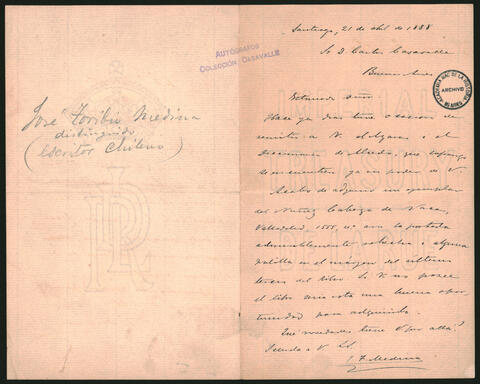 José Toribio Medina
distinguido
(escritor Chileno)
AUTÓGRAFOS
COLECCIÓN CASAVALLE
Santiago, 21 de abl de 1888
Sr D. Carlos Casavalle
Buenos Aires
ACADEMIA NAC. DE LA HISTORIA
ARCHIVO
BS. AIRES
Estimado Señor:
Hace ya días tuve ocasión de
remitir a V. el
de Alcedo, que supongo
se encuentren ya en poder de V.
Acabo de adquirir un ejemplar
del Núñez Cabeza de Vaca,
Valladolid, 1555, 4º con la portada
admirablemente i alguna
polilla en el márgen del último
tercio del libro. Si V. no posee
el libro sería esta una buena opor-
tunidad para adquirirlo.
Qué novedades tiene V. por allá?
Saluda a V. S.S.
J. T. Medina
IMPERIAL